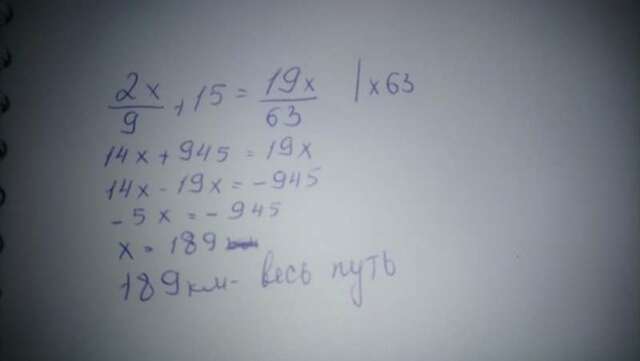 2x/9 + 15 = 19x/63 | x63
14x + 945 = 19x
14x - 19x = - 945
- 5x = - 945
x = 189
189 км - весь путь